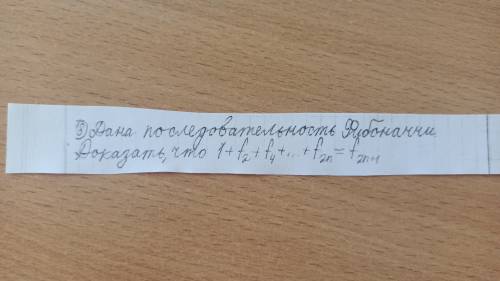 5) Дана последовательность Фибоначчи
Доказать, что 1+f₂+f₄+...+f₂ₙ=f₂ₙ₊₁